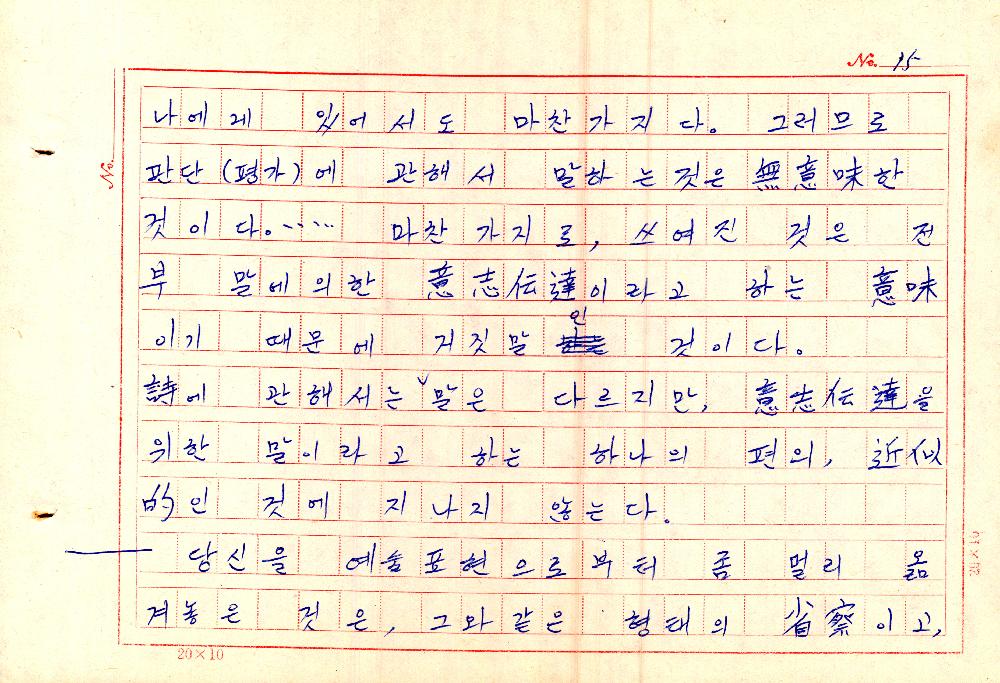 No. 15
No.
나에게 있어서도 마찬가지다. 그러므로
판단(평가)에 관해서 말하는것은 無意味한
것이다.…… 마찬가지로, 쓰여진 것은 전
부 말에의한 意志伝達이라고 하는 意味
이기 때문에 거짓말인 것이다.
詩에 관해서는 말은 다르지만, 意志伝達을
위한 말이라고 하는 하나의 편의, 近似
的인 것에 지나지 않는다.
당신을 예술표현으로부터 좀 멀리 옮
겨놓은 것은, 그와같은 형태의 省察이고,
20×10